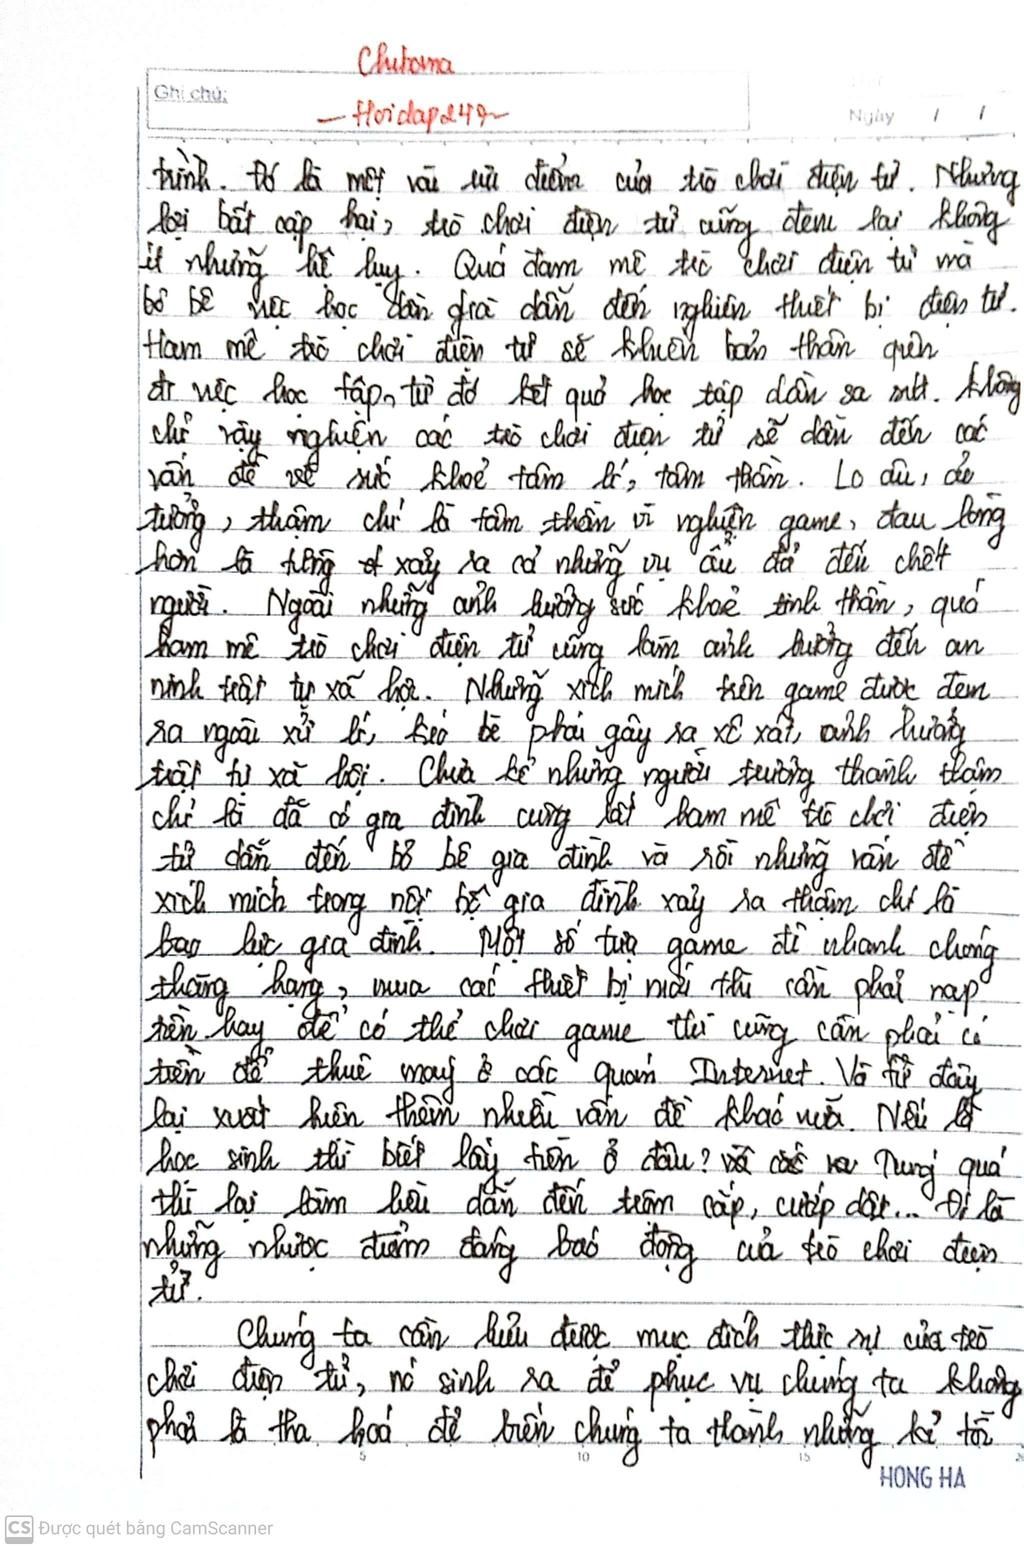 Chutoma
Ghi chú:
- Hoidap247-
Ngày / /
trình. Đó là một vài ưu điểm của trò chơi điện tử. Nhưng
lợi bất cập hại, trò chơi điện tử cũng đem lại không
ít những hệ lụy. Quá đam mê trò chơi điện tử mà
bỏ bê việc học dần già dẫn đến nghiện thiết bị điện tử.
Ham mê trò chơi điện tử sẽ khiến bản thân quên
đi việc học tập, từ đó kết quả học tập dần sa sút. Không
chỉ vậy nghiện các trò chơi điện tử sẽ dẫn đến các
vấn đề về sức khoẻ tâm lí, tâm thần. Lo âu, ảo
tưởng, thậm chí là tâm thần vì nghiện game, đau lòng
hơn là từng xảy ra cả những vụ ẩu đả đến chết
người. Ngoài những ảnh hưởng sức khoẻ tinh thần, quá
ham mê trò chơi điện tử cũng làm ảnh hưởng đến an
ninh trật tự xã hội. Những xích mích trên game được đem
ra ngoài xử lí, kéo bè phái gây ra xô xát, ảnh hưởng
trật tự xã hội. Chưa kể những người trưởng thành thậm
chí là đã có gia đình cũng rất ham mê trò chơi điện
tử dẫn đến bỏ bê gia đình và rồi những vấn đề
xích mích trong nội bộ gia đình xảy ra thậm chí là
bạo lực gia đình. Một số tựa game để nhanh chóng
thăng hạng, mua các thiết bị mới thì cần phải nạp
tiền hay để có thể chơi game thì cũng cần phải có
tiền để thuê máy ở các quán Internet. Và từ đây
lại xuất hiện thêm nhiều vấn đề khác nữa. Nếu là
học sinh thì biết lấy tiền ở đâu? Túng quá
thì lại làm liều dẫn đến trộm cắp, cướp dật... Đó là
những nhược điểm đáng báo động của trò chơi điện
tử.
Chúng ta cần hiểu được mục đích thực sự của trò
chơi điện tử, nó sinh ra để phục vụ chúng ta không
phải là tha hoá để biến chúng ta thành những kẻ tồi
5 10 15 20
HONG HA
CS Được quét bằng CamScanner